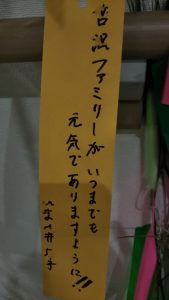 宮沢ファミリーがいつまでも
元気でありますように!!